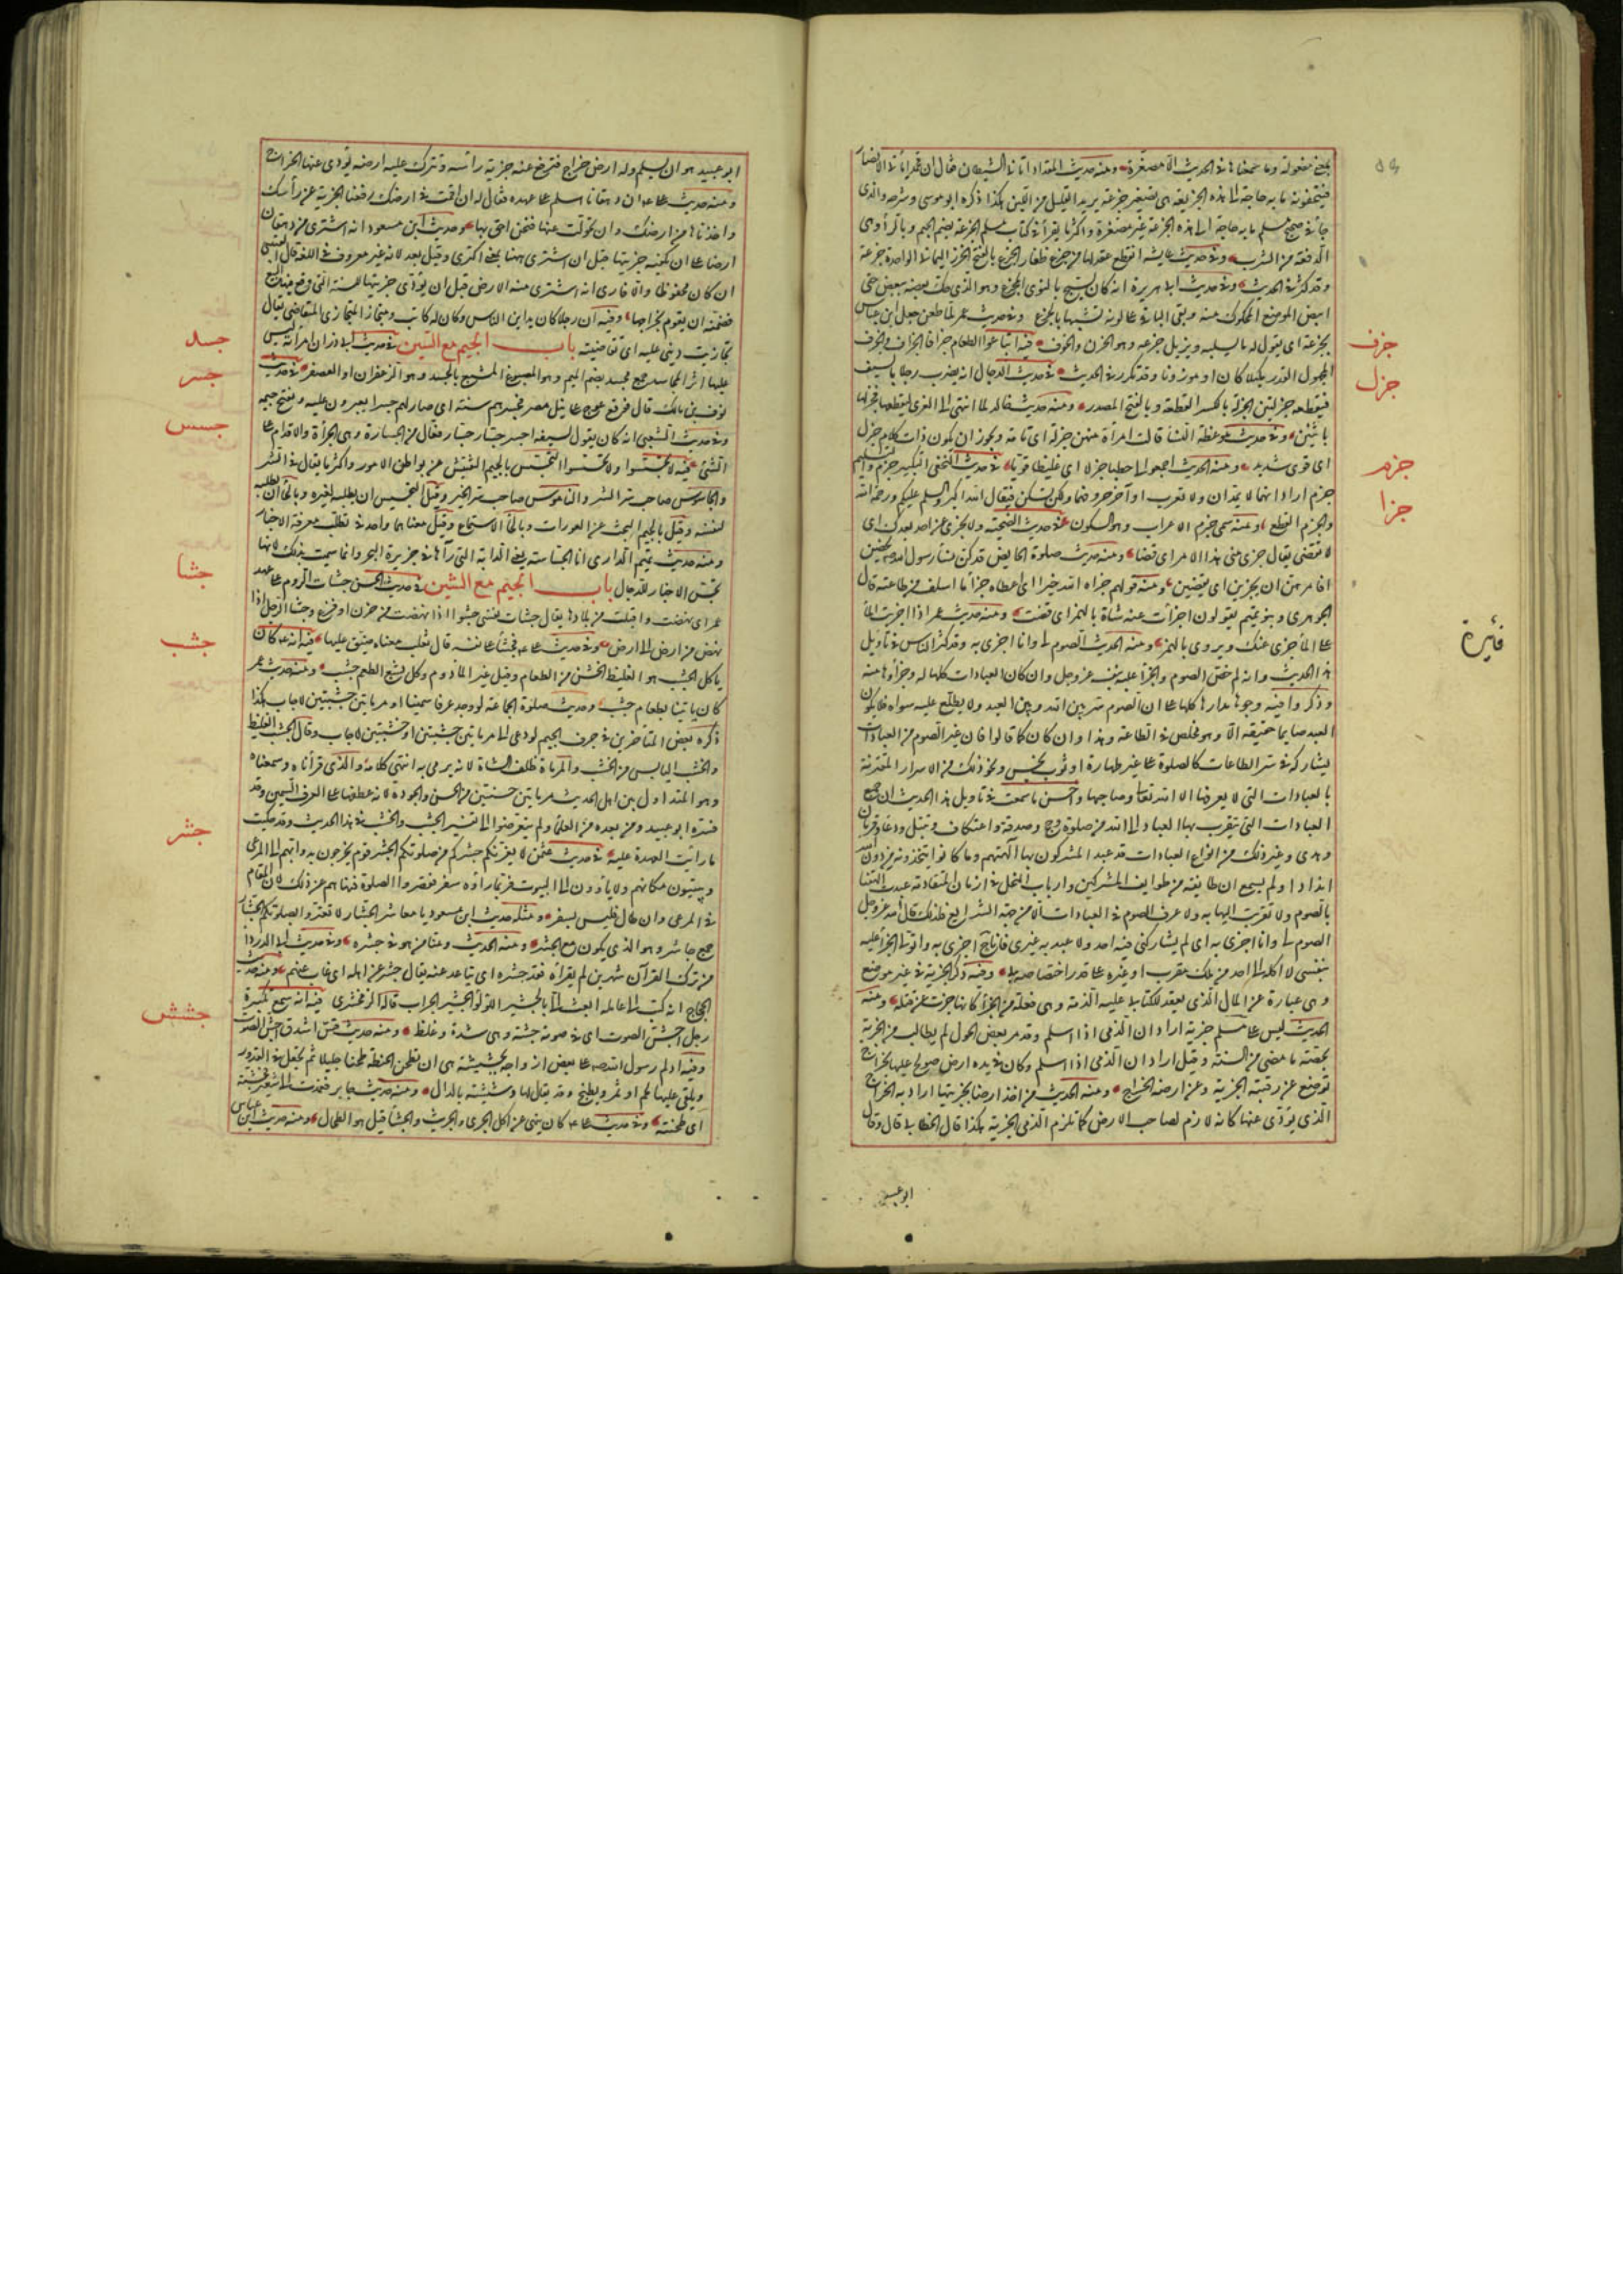 بمعنى مفعولة وما سمعناها في الحديث الا مصغرة ومنه حديث المقداد اتاني الشيطان فقال ان محمدا يأتي الانصار
فيتحفونه ما به حاجة الى هذه الجزيعة هي تصغير جزعة يريد القليل من اللبن هكذا ذكره ابو موسى وشرحه والذي
جاء في صحيح مسلم ما به حاجة الى هذه الجزعة غير مصغرة واكثر ما يقرأ في كتاب مسلم الجرعة بضم الجيم وبالراء وهي
الدفعة من الشرب وفي حديث عايشة انقطع عقد لها من جزع ظفار الجزع بالفتح الخرز اليماني الواحدة جزعة
وقد كثر في الحديث وفي حديث ابي هريرة انه كان يسبح بالنوى المجزع وهو الذي حك بعضه بعضا حتى
ابيض الموضع المحكوك منه وبقي الباقي على لونه تشبيها بالجزع وفي حديث عمر لما طعن جعل ابن عباس
يجزعه اي يقول له ما يسليه ويزيل جزعه وهو الحزن والخوف فيه ابتاعوا الطعام جزافا الجزاف والجزف
المجهول القدر مكيلا كان او موزونا وقد تكرر في الحديث في حديث الدجال انه يضرب رجلا بالسيف
فيقطعه جزلتين الجزلة بالكسر القطعة وبالفتح المصدر ومنه حديث خالد لما انتهى الى العزى ليقطعها فجزلها
باثنين وفي حديث موعظة النساء قالت امرأة منهن جزلة اي تامة ويجوز ان يكون ذات كلام جزل
اي قوي شديد ومنه الحديث اجمعوا لي حطبا جزلا اي غليظا قويا في حديث النخعي التكبير جزم والتسليم
جزم اراد انهما لا يمدان ولا يعرب اواخر حروفهما ولكن يسكن فيقال الله اكبر والسلام عليكم ورحمة الله
والجزم القطع ومنه سمي جزم الاعراب وهو السكون في حديث الضحية ولا يجزي عن احد بعدك اي
لا تقضي يقال جزى عني هذا الامر اي قضا ومنه حديث صلوة الحايض قد كن نساء رسول الله يحضن
افامرهن ان يجزين اي يقضين ومنه قولهم جزاه الله خيرا اي اعطاه جزاء ما اسلف من طاعته قال
الجوهري وبنو تميم يقولون اجزأت عنه شاة بالهمز اي قضت ومنه حديث عمر اذا اجريت الماء
على الماء جزى عنك ويروى بالهمز ومنه الحديث الصوم لي وانا اجزي به وقد اكثر الناس في تأويل
هذا الحديث وانه لم خص الصوم والجزاء عليه بنفسه عز وجل وان كان العبادات كلها له وجزاؤها منه
وذكروا فيه وجوها مدارها كلها على ان الصوم سر بين الله وبين العبد ولا يطلع عليه سواه فلا يكون
العبد صايما حقيقة الا وهو مخلص في الطاعة وهذا وان كان كما قالوا فان غير الصوم من العبادات
يشاركه في سر الطاعات كالصلوة على غير طهارة او ثوب نجس ونحو ذلك من الاسرار المقترنة
بالعبادات التي لا يعرفها الا الله تعالى وصاحبها واحسن ما سمعت في تأويل هذا الحديث ان جميع
العبادات التي يتقرب بها العباد الى الله من صلوة وحج وصدقة واعتكاف وتبتل ودعاء وقربان
وهدي وغير ذلك من انواع العبادات قد عبد المشركون بها آلهتهم وما كانوا يتخذونه من دون الله
اندادا ولم يسمع ان طايفة من طوايف المشركين وارباب النحل في ازمان المتقادمة عبدت آلهتها
بالصوم ولا تقربت اليها به ولا عرف الصوم في العبادات الا من جهة الشرايع فلذلك قال الله عز وجل
الصوم لي وانا اجزي به اي لم يشاركني فيه احد ولا عبد به غيري فانا حينئذ اجزي به واتولى الجزاء عليه
بنفسي لا اكله الى احد من ملك مقرب او غيره على قدر اختصاصه بي وفيه ذكر الجزية في غير موضع
وهي عبارة عن المال الذي يعقد للكتابي عليه الذمة وهي فعلة من الجزاء كانها جزت عن قتله ومنه
الحديث ليس على مسلم جزية اراد ان الذمي اذا اسلم وقد مر بعض الحول لم يطالب من الجزية
بحصته ما مضى من السنة وقيل اراد ان الذمي اذا اسلم وكان في يده ارض صولح عليها بخراج
توضع عن رقبته الجزية وعن ارضه الخراج ومنه الحديث من اخذ ارضا بجزيتها اراد به الخراج
الذي يؤدى عنها كانه لازم لصاحب الارض كما تلزم الذمي الجزية هكذا قال الخطابي قال وقال
ابو عبيد
جزف
جزل
جزم
جزا
ابو عبيد هو ان يسلم وله ارض خراج فترفع عنه جزية رأسه وتترك عليه ارضه يؤدي عنها الخراج
ومنه حديث علي ان دهقانا اسلم على عهده فقال له ان اقمت في ارضك رفعنا الجزية عن رأسك
واخذناها من ارضك وان تحولت عنها فنحن احق بها وحديث ابن مسعود انه اشترى من دهقان
ارضا على ان يكفيه جزيتها قيل ان اشترى ههنا بمعنى اكترى وقيل بعد لانه غير معروف في اللغة قال القتيبي
ان كان محفوظا والا فارى انه اشترى منه الارض قبل ان يؤدي جزيتها للسنة التي وقع فيها البيع
فضمنه ان يقوم بخراجها وفيه ان رجلا كان يداين الناس وكان له كاتب ومتجاز المتجازي المتقاضي يقال
تجازيت ديني عليه اي تقاضيته باب الجيم مع السين في حديث ابي ذر ان امرأته ليس
عليها اثر المجاسد جمع مجسد بضم الميم وهو المصبوغ المشبع بالجسد وهو الزعفران او العصفر في حديث
نوف بن مالك قال فوقع عوج على نيل مصر فجسرهم سنة اي صار لهم جسرا يعبرون عليه وتفتح جيمه
وفي حديث الشعبي انه كان يقول لسيفه اجسر جسار جسار فعال من الجسارة وهي الجرأة والاقدام على
الشئ فيه لا تجسسوا ولا تحسسوا التجسس بالجيم التفتيش عن بواطن الامور واكثر ما يقال في الشر
والجاسوس صاحب سر الشر والناموس صاحب سر الخير وقيل التجسس ان يطلبه لغيره وبالحاء ان يطلبه
لنفسه وقيل بالجيم البحث عن العورات وبالحاء الاستماع وقيل معناهما واحد في تطلب معرفة الاخبار
ومنه حديث تميم الداري انا الجساسة يعني الدابة التي رآها في جزيرة البحر وانما سميت بذلك لانها
تجس الاخبار للدجال باب الجيم مع الشين في حديث الحسن جشأت الروم على عهد
عمر اي نهضت واقبلت من بلادها يقال جشأت نفسي جشوءا اذا نهضت من حزن او فزع وجشأ الرجل اذا
نهض من ارض الى ارض وفي حديث علي فجشأ على نفسه قال ثعلب معناه ضيق عليها فيه انه كان
يأكل الجشب هو الغليظ الخشن من الطعام وقيل غير المأدوم وكل بشع الطعم جشب ومنه حديث عمر
كان يأتينا بطعام جشب وحديث صلوة الجماعة لو وجد عرقا سمينا او مرماتين جشبتين لاجاب هكذا
ذكره بعض المتأخرين في حرف الجيم لو دعي الى مرماتين جشبتين او خشبتين لاجاب وقال الجشب الغليظ
والخشب اليابس من الخشب والمرماة ظلف الشاة لانه يرمى به انتهى كلامه والذي قرأناه وسمعناه
وهو المتداول بين اهل الحديث مرماتين حسنتين من الحسن والجودة لانه عطفهما على العرق السمين وقد
فسره ابو عبيد ومن بعده من العلماء ولم يتعرضوا الى تفسير الجشب والخشب في هذا الحديث وقد حكيت
ما رأيت العهدة عليه في حديث عثمن لا يغرنكم جشركم من صلوتكم الجشر قوم يخرجون بدوابهم الى المرعى
ويبيتون مكانهم ولا يأوون الى البيوت فربما رأوه سفر فقصروا الصلوة فنهاهم عن ذلك لان المقام
في المرعى وان طال فليس بسفر ومثله حديث ابن مسعود يا معاشر الجشار لا تغتروا بصلوتكم الجشار
جمع جاشر وهو الذي يكون مع الجشر ومنه الحديث ومنا من هو في جشره وفي حديث ابي الدرداء
من ترك القرآن شهرين لم يقرأه فقد جشره اي تباعد عنه يقال جشر عن اهله اي غاب عنهم ومنه حديث
الحجاج انه كتب الى عامله ابعث الي بالجشير اللؤلؤ الجشير الجراب قاله الزمخشري فيه انه سمع تكبيرة
رجل اجش الصوت اي في صوته جشة وهي شدة وغلظ ومنه حديث قس اشدق اجش الصوت
وفيه اولم رسول الله صلعم على بعض ازواجه بجشيشة هي ان تطحن الحنطة طحنا جليلا ثم تجعل في القدور
ويلقى عليها لحم او تمر ويطبخ وقد يقال لها دشيشة بالدال ومنه حديث جابر فعمدت الى شعير فجشته
اي طحنته وفي حديث علي كان ينهى عن اكل الجري والجريث والجشاء قيل هو الطحال ومنه حديث ابن عباس
جسد
جسر
جسس
جشا
جشب
جشر
جشش